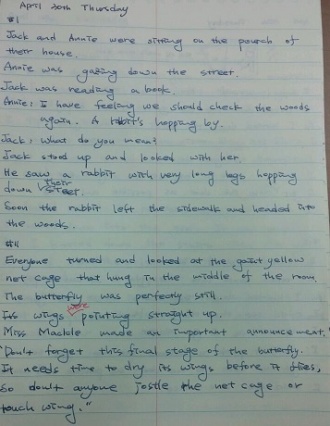 April 20th Thursday
#1
Jack and Annie were sitting on the pourch of
their house.
Annie was gazing down the street.
Jack was reading a book.
Annie: I have feeling we should check the woods
again. A rabit's hopping by.
Jack: What do you mean?
Jack stood up and looked with her.
He saw a rabbit with very long legs hopping
down their street.
Soon the rabbit left the sidewalk and headed into
the woods.
#4
Everyone turned and looked at the gaint yellow
net cage that hung in the middle of the room.
The butterfly was perfectly still.
Its wings were pointing straight up.
Miss made an important announcement.
"Don't forget this final stage of the butterfly.
It needs time to dry its wings before it flies,
So don't anyone jostle the net cage or
touch wing."